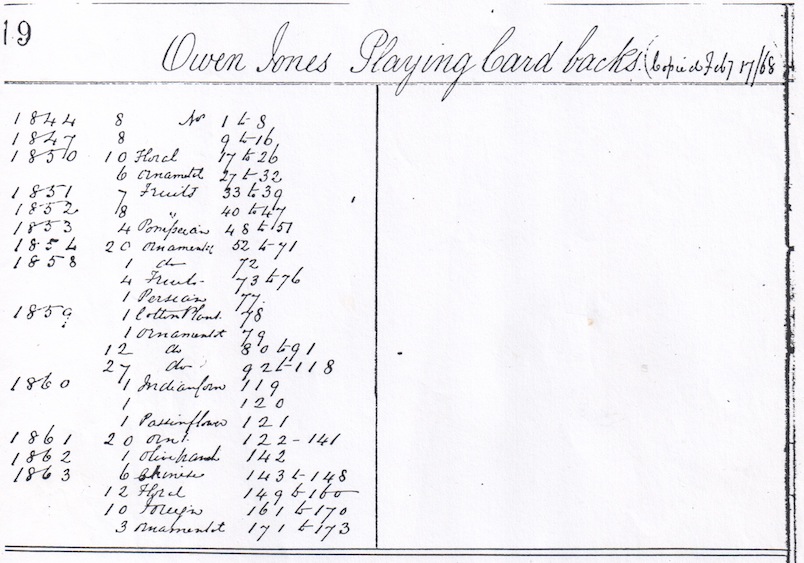 19
Owen Jones Playing Card backs. (Copied Feby 17/68
1844 8 Nos 1 to 8
1847 8 9 to 16
1850 10 Floral 17 to 26
6 Ornamental 27 to 32
1851 7 Fruits 33 to 39
1852 8 " 40 to 47
1853 4 Pompeian 48 to 51
1854 20 Ornamental 52 to 71
1858 1 do 72
4 Fruits 73 to 76
1 Persian 77.
1859 1 Cotton Plant 78
1 Ornamental 79
12 do 80 to 91
27 do 92 to 118
1860 1 Indian Corn 119
1 120
1 Passionflower 121
1861 20 Ornl. 122 - 141
1862 1 142
1863 6 Chinese 143 to 148
12 Floral 149 to 160
10 Foreign 161 to 170
3 Ornamental 171 to 173